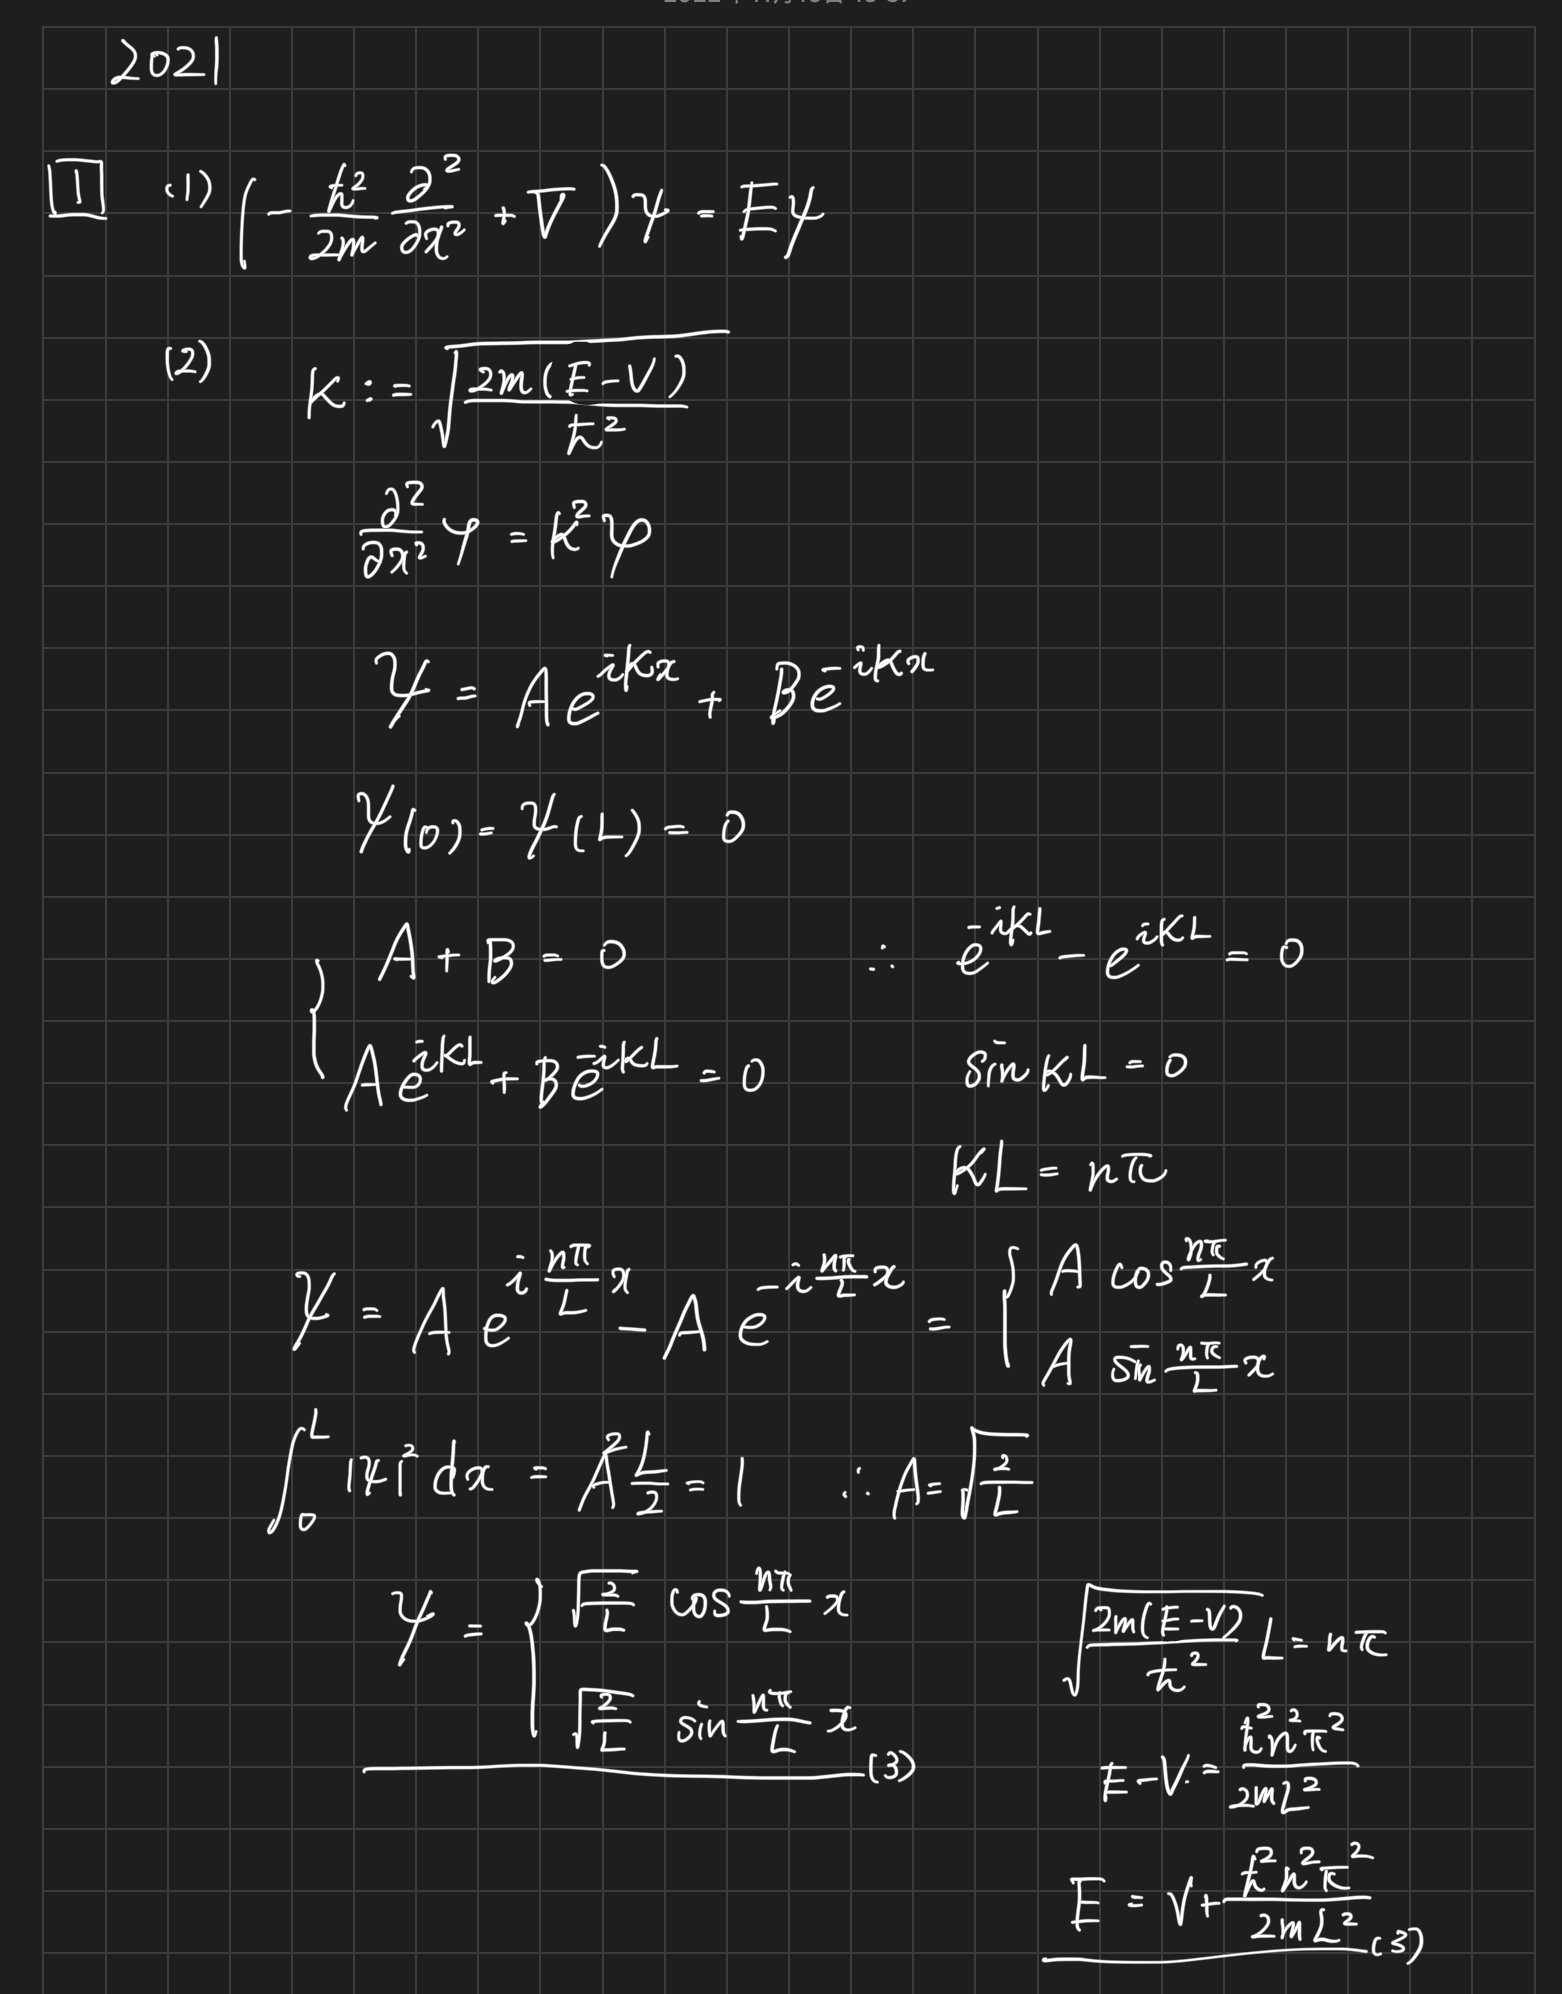 2021
1 (1) (-ħ²/2m ∂²/∂x² + V)ψ = Eψ
(2) K := √(2m(E-V)/ħ²)
∂²/∂x² ψ = K²ψ
ψ = Ae^{iKx} + Be^{-iKx}
ψ(0) = ψ(L) = 0
A + B = 0 ∴ e^{-iKL} - e^{iKL} = 0
Ae^{iKL} + Be^{-iKL} = 0 sin KL = 0
KL = nπ
ψ = A e^{i nπ/L x} - A e^{-i nπ/L x} = { A cos nπ/L x
A sin nπ/L x
∫₀^L |ψ|² dx = A² L/2 = 1 ∴ A = √(2/L)
ψ = { √(2/L) cos nπ/L x
√(2/L) sin nπ/L x (3)
√(2m(E-V)/ħ²) L = nπ
E-V = ħ²n²π²/2mL²
E = V + ħ²n²π²/2mL² (3)